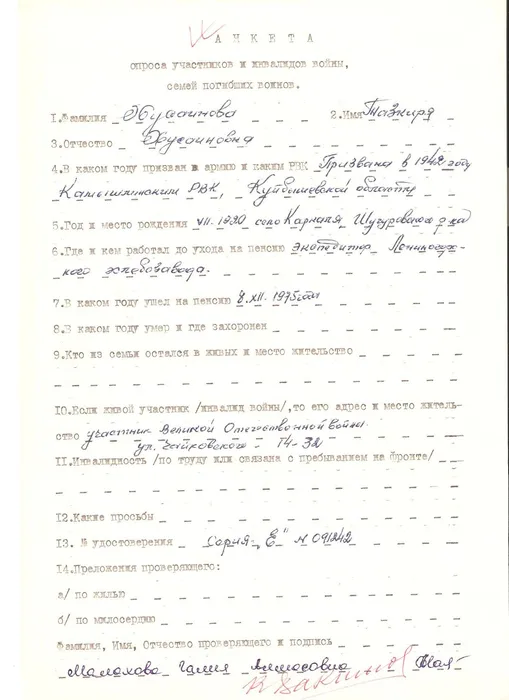 АНКЕТА
опроса участников и инвалидов войны,
семей погибших воинов.
1.Фамилия Хусаинова 2.Имя Тазкиря
3.Отчество Хусаиновна
4.В каком году призван в армию и каким РВК Призвана в 1942 году
РВК, Куйбышевской области
5.Год и место рождения VII.1920 село Шугуровского р-на
6.Где и кем работал до ухода на пенсию Экспедитор Лениногорс-
кого хлебозавода.
7.В каком году ушел на пенсию 8.XII.1975 году
8.В каком году умер и где захоронен
9.Кто из семьи остался в живых и место жительство
10.Если живой участник /инвалид войны/,то его адрес и место житель-
ство участник Великой Отечественной войны
ул. Чайковского 14-32
11.Инвалидность /по труду или связана с пребыванием на фронте/
12.Какие просьбы
13. № удостоверения Серия „Е" № 091242
14.Преложения проверяющего:
а/ по жилью
б/ по милосердию
Фамилия, Имя, Отчество проверяющего и подпись
Малахова Галия